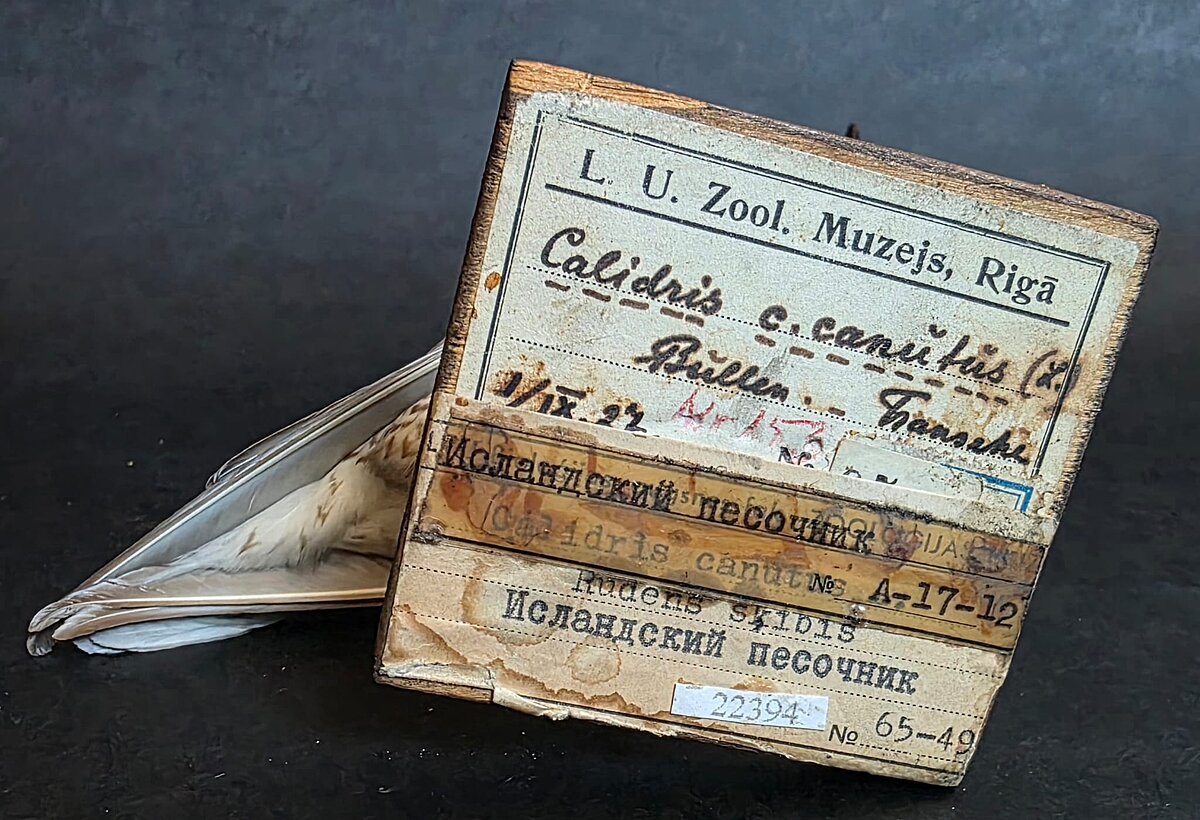 L. U. Zool. Muzejs, Rigā
Calidris c. canŭtŭs (L.)
Bŭllen
1/IX 27 Nr 153
№
Исландский песочник
Calidris canutus
№ A-17-12
Rudens šķibis
Исландский песочник
22394
№ 65-49